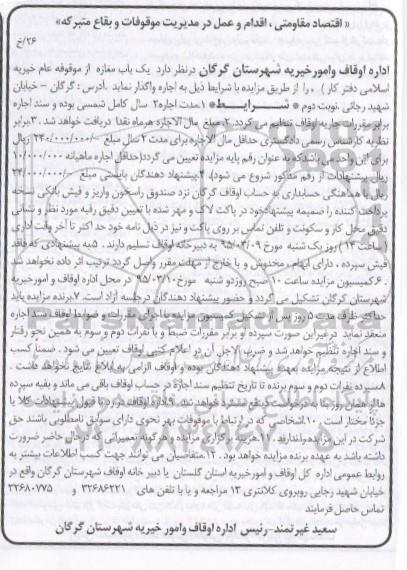 « اقتصاد مقاومتی ، اقدام و عمل در مدیریت موقوفات و بقاع متبرکه»
۲۶/خ
اداره اوقاف وامورخیریه شهرستان گرگان درنظر دارد یک باب مغازه از موقوفه عام خیریه
اسلامی دفتر کار ) ، را از طریق مزایده با شرایط ذیل به اجاره واگذار نماید .آدرس : گرگان – خیابان
شهید رجائی نوبت دوم * شرایط* ۱.مدت اجاره۲ سال کامل شمسی بوده و سند اجاره
برابر مقررات جاریه اوقاف تنظیم می گردد.۲.مبلغ مال الاجاره هرماه نقدا دریافت خواهد شد .۳.برابر
نظریه کارشناس رسمی دادگستری حداقل مال الاجاره برای مدت ۲ سال مبلغ –/۲۴۰/۰۰۰/۰۰۰ ریال
برای این واحد می باشدکه به عنوان رقم پایه مزایده تعیین می گردد(حداقل اجاره ماهیانه ۱۰/۰۰۰/۰۰۰
ریال پیشنهادات از رقم مذکور شروع می شود). ۴.پیشنهاد دهندگان بایستی مبلغ –/۲۴/۰۰۰/۰۰۰
ریال با هماهنگی حسابداری به حساب اوقاف گرگان نزد صندوق راسخون واریز و فیش بانکی نسخه
پرداخت کننده را ضمیمه پیشنهاد خود در پاکت لاک و مهر شده با تعیین دقیق رقبه مورد نظر و نشانی
دقیق محل کار و سکونت و تلفن تماس بر روی پاکت و نیز در ذیل نامه خود حد اکثر تا آخر وقت اداری
(ساعت ۱۴ ) روز یک شنبه مورخ ۹۵/۰۳/۰۹ به دبیرخانه اوقاف تسلیم دارند . ۵.به پیشنهادی که فاقد
فیش سپرده ، دارای ابهام ، مخدوش و یا خارج از مهلت مقرر واصل گردد ترتیب اثر داده نخواهد شد
. ۶.کمیسیون مزایده ساعت ۱۰ صبح روزدو شنبه مورخ ۹۵/۰۳/۱۰ در محل اداره اوقاف و امورخیریه
شهرستان گرگان تشکیل می گردد و حضور پیشنهاد دهندگان درجلسه آزاد است. ۷.برنده مزایده باید
حداکثر ظرف مدت ۵ روز پس از تشکیل کمیسیون مزایده با اجرای مقررات و ضوابط اوقاف سند اجاره
منعقد نماید درغیراین صورت سپرده او برابر مقررات ضبط و با نفرات دوم و سوم به همین نحو رفتار
و سند اجاره تنظیم خواهد شد و ضریب الاجل آن در اعلام کتبی اوقاف تعیین می شود . ضمنا کسب
اطلاع از نتیجه مزایده بعهده پیشنهاد دهندگان بوده و اوقاف الزامی به ابلاغ نتایج نخواهد داشت .
۸.سپرده نفرات دوم و سوم برنده تا تاریخ تنظیم سند اجاره در حساب اوقاف باقی می ماند و بقیه سپرده
ها از همان روز بنا به درخواست کتبی مسترد خواهد شد. ۹.اداره اوقاف در رد یا قبول پیشنهادات کلا یا
جزئا مختار است . ۱۰.اشخاصی که در ارتباط با موقوفات بهر نحوی دارای سوابق نامطلوبی باشند حق
شرکت در این مزایده را ندارند . ۱۱.هزینه برگزاری مزایده و هرگونه تعمیراتی که درحال حاضر ضرورت
داشته باشد به عهده برنده مزایده خواهد بود . ۱۲.متقاضیان می توانند جهت کسب اطلاعات بیشتر به
روابط عمومی اداره کل اوقاف و امورخیریه استان گلستان یا دبیر خانه اوقاف شهرستان گرگان واقع در
خیابان شهید رجایی روبروی کلانتری ۱۳ مراجعه و یا با تلفن های ۳۲۶۸۶۲۲۱ و ۳۲۶۸۰۷۷۵
تماس حاصل فرمایند
سعید غیرتمند-رئیس اداره اوقاف وامور خیریه شهرستان گرگان